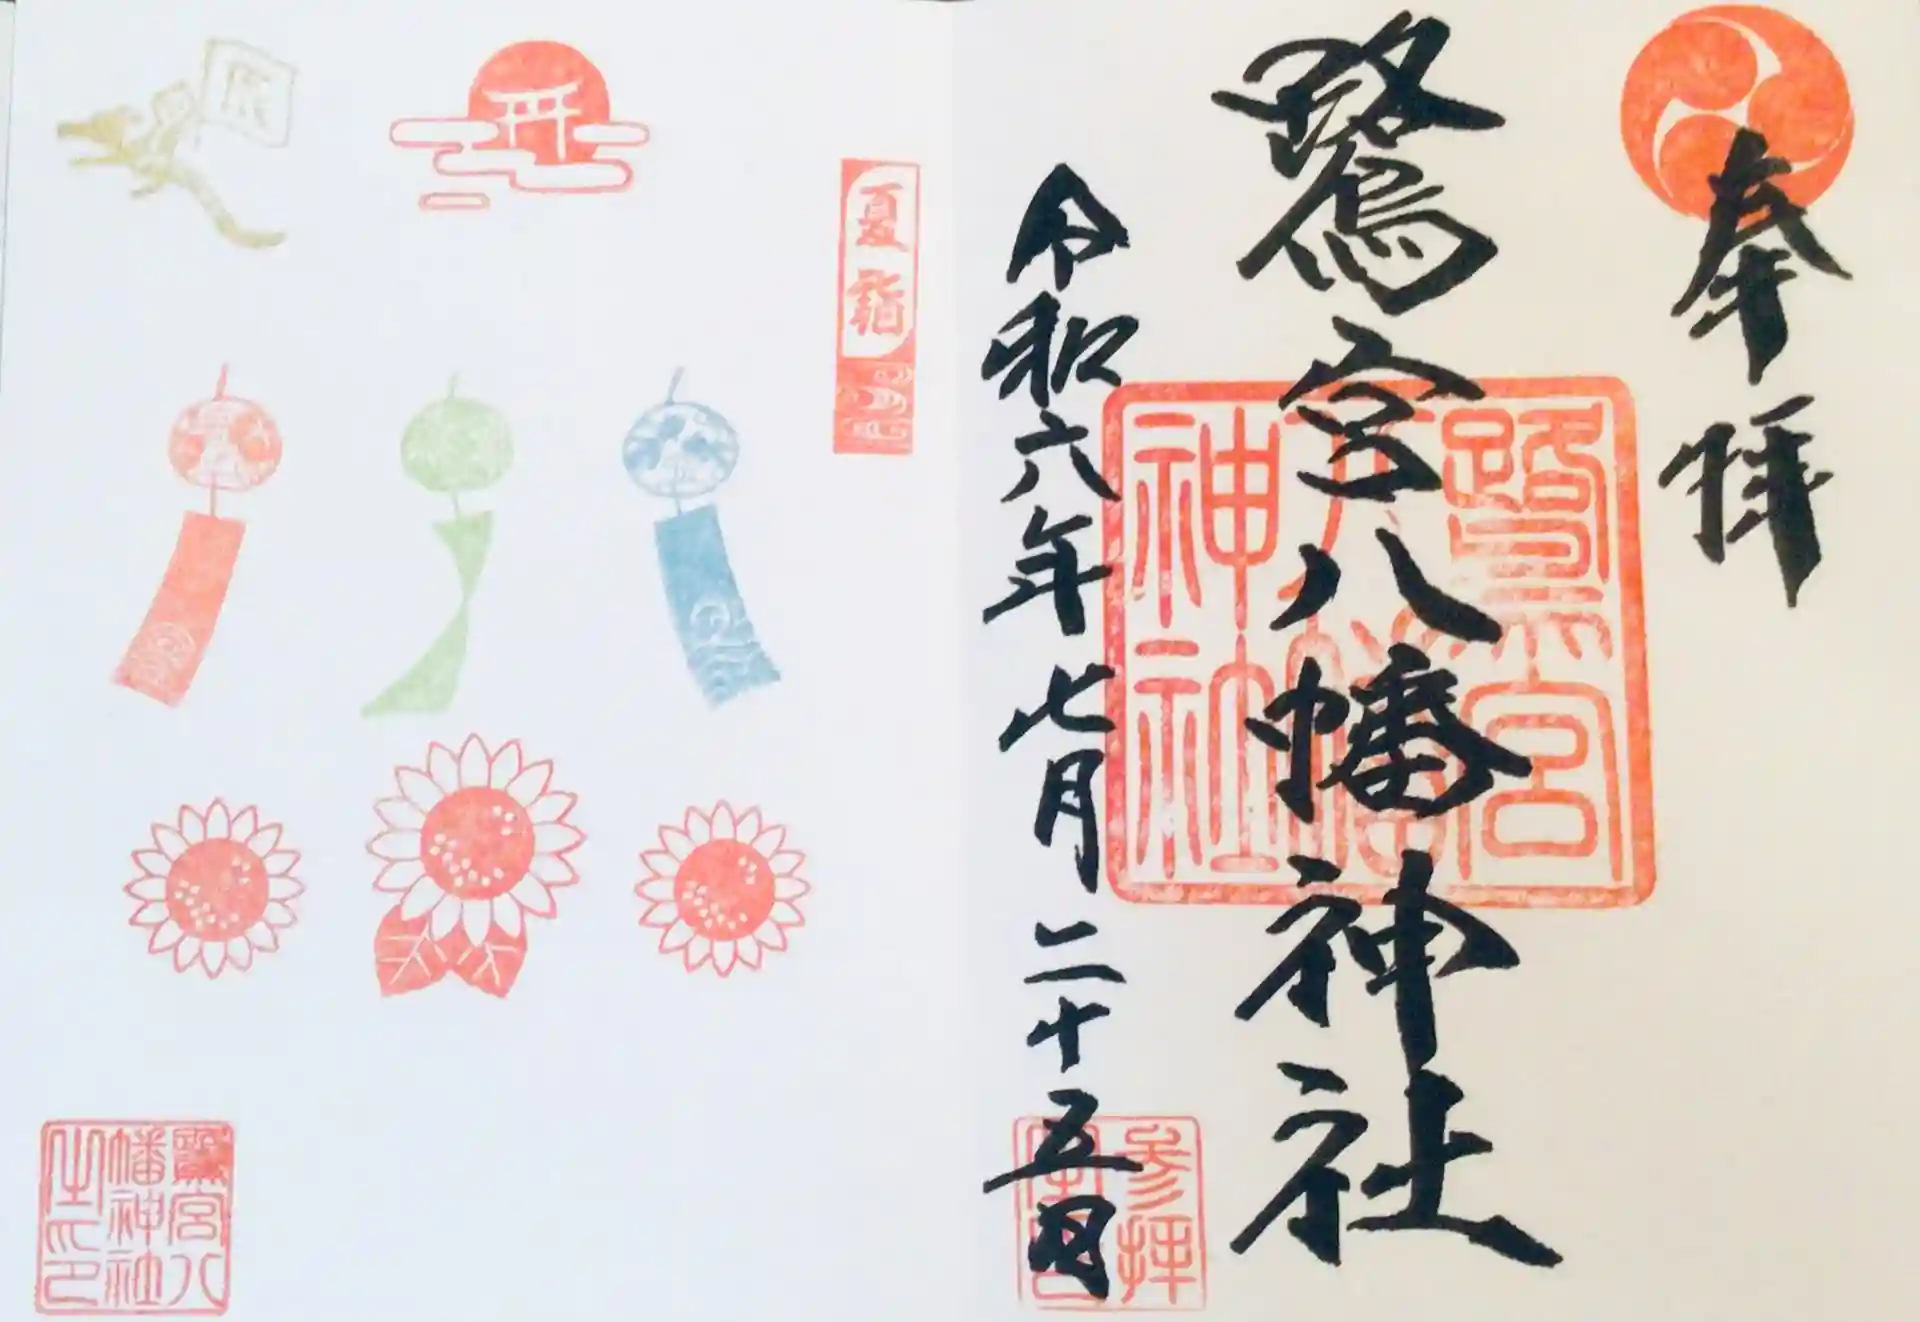 奉拝
鷺宮八幡神社
鷺宮
八幡
神社
令和六年七月二十五日
参拝
夏詣
辰
鷺宮八
幡神社
之印